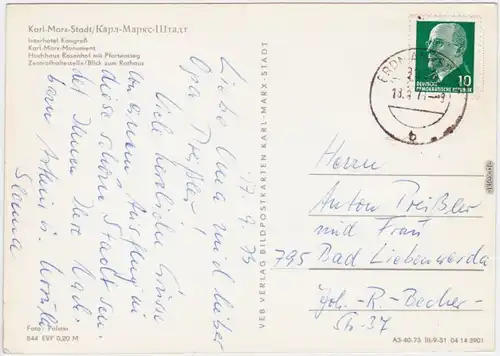 Karl-Marx-Stadt/Карл-Маркс-Штадт
Interhotel Kongreß
Karl-Marx-Monument
Hochhaus Rosenhof mit Pfortensteg
Zentralhaltestelle/Blick zum Rathaus
17. 9. 75
Liebe Oma und lieber
Opa Preißler!
Viele herzliche Grüße
von einem Ausflug in
diese schöne Stadt sen-
det Ihnen Ihre Nach-
barn
Foto: Polster
844 EVP 0,20 M
VEB VERLAG BILDPOSTKARTEN KARL-MARX-STADT
DEUTSCHE
DEMOKRATISCHE REPUBLIK
10
b
Herrn
Anton Preißler
und Frau
795 Bad Liebenwerda
Joh.-R.-Becher-
Str. 37
A3-40-75 III-9-51 04 14 3901